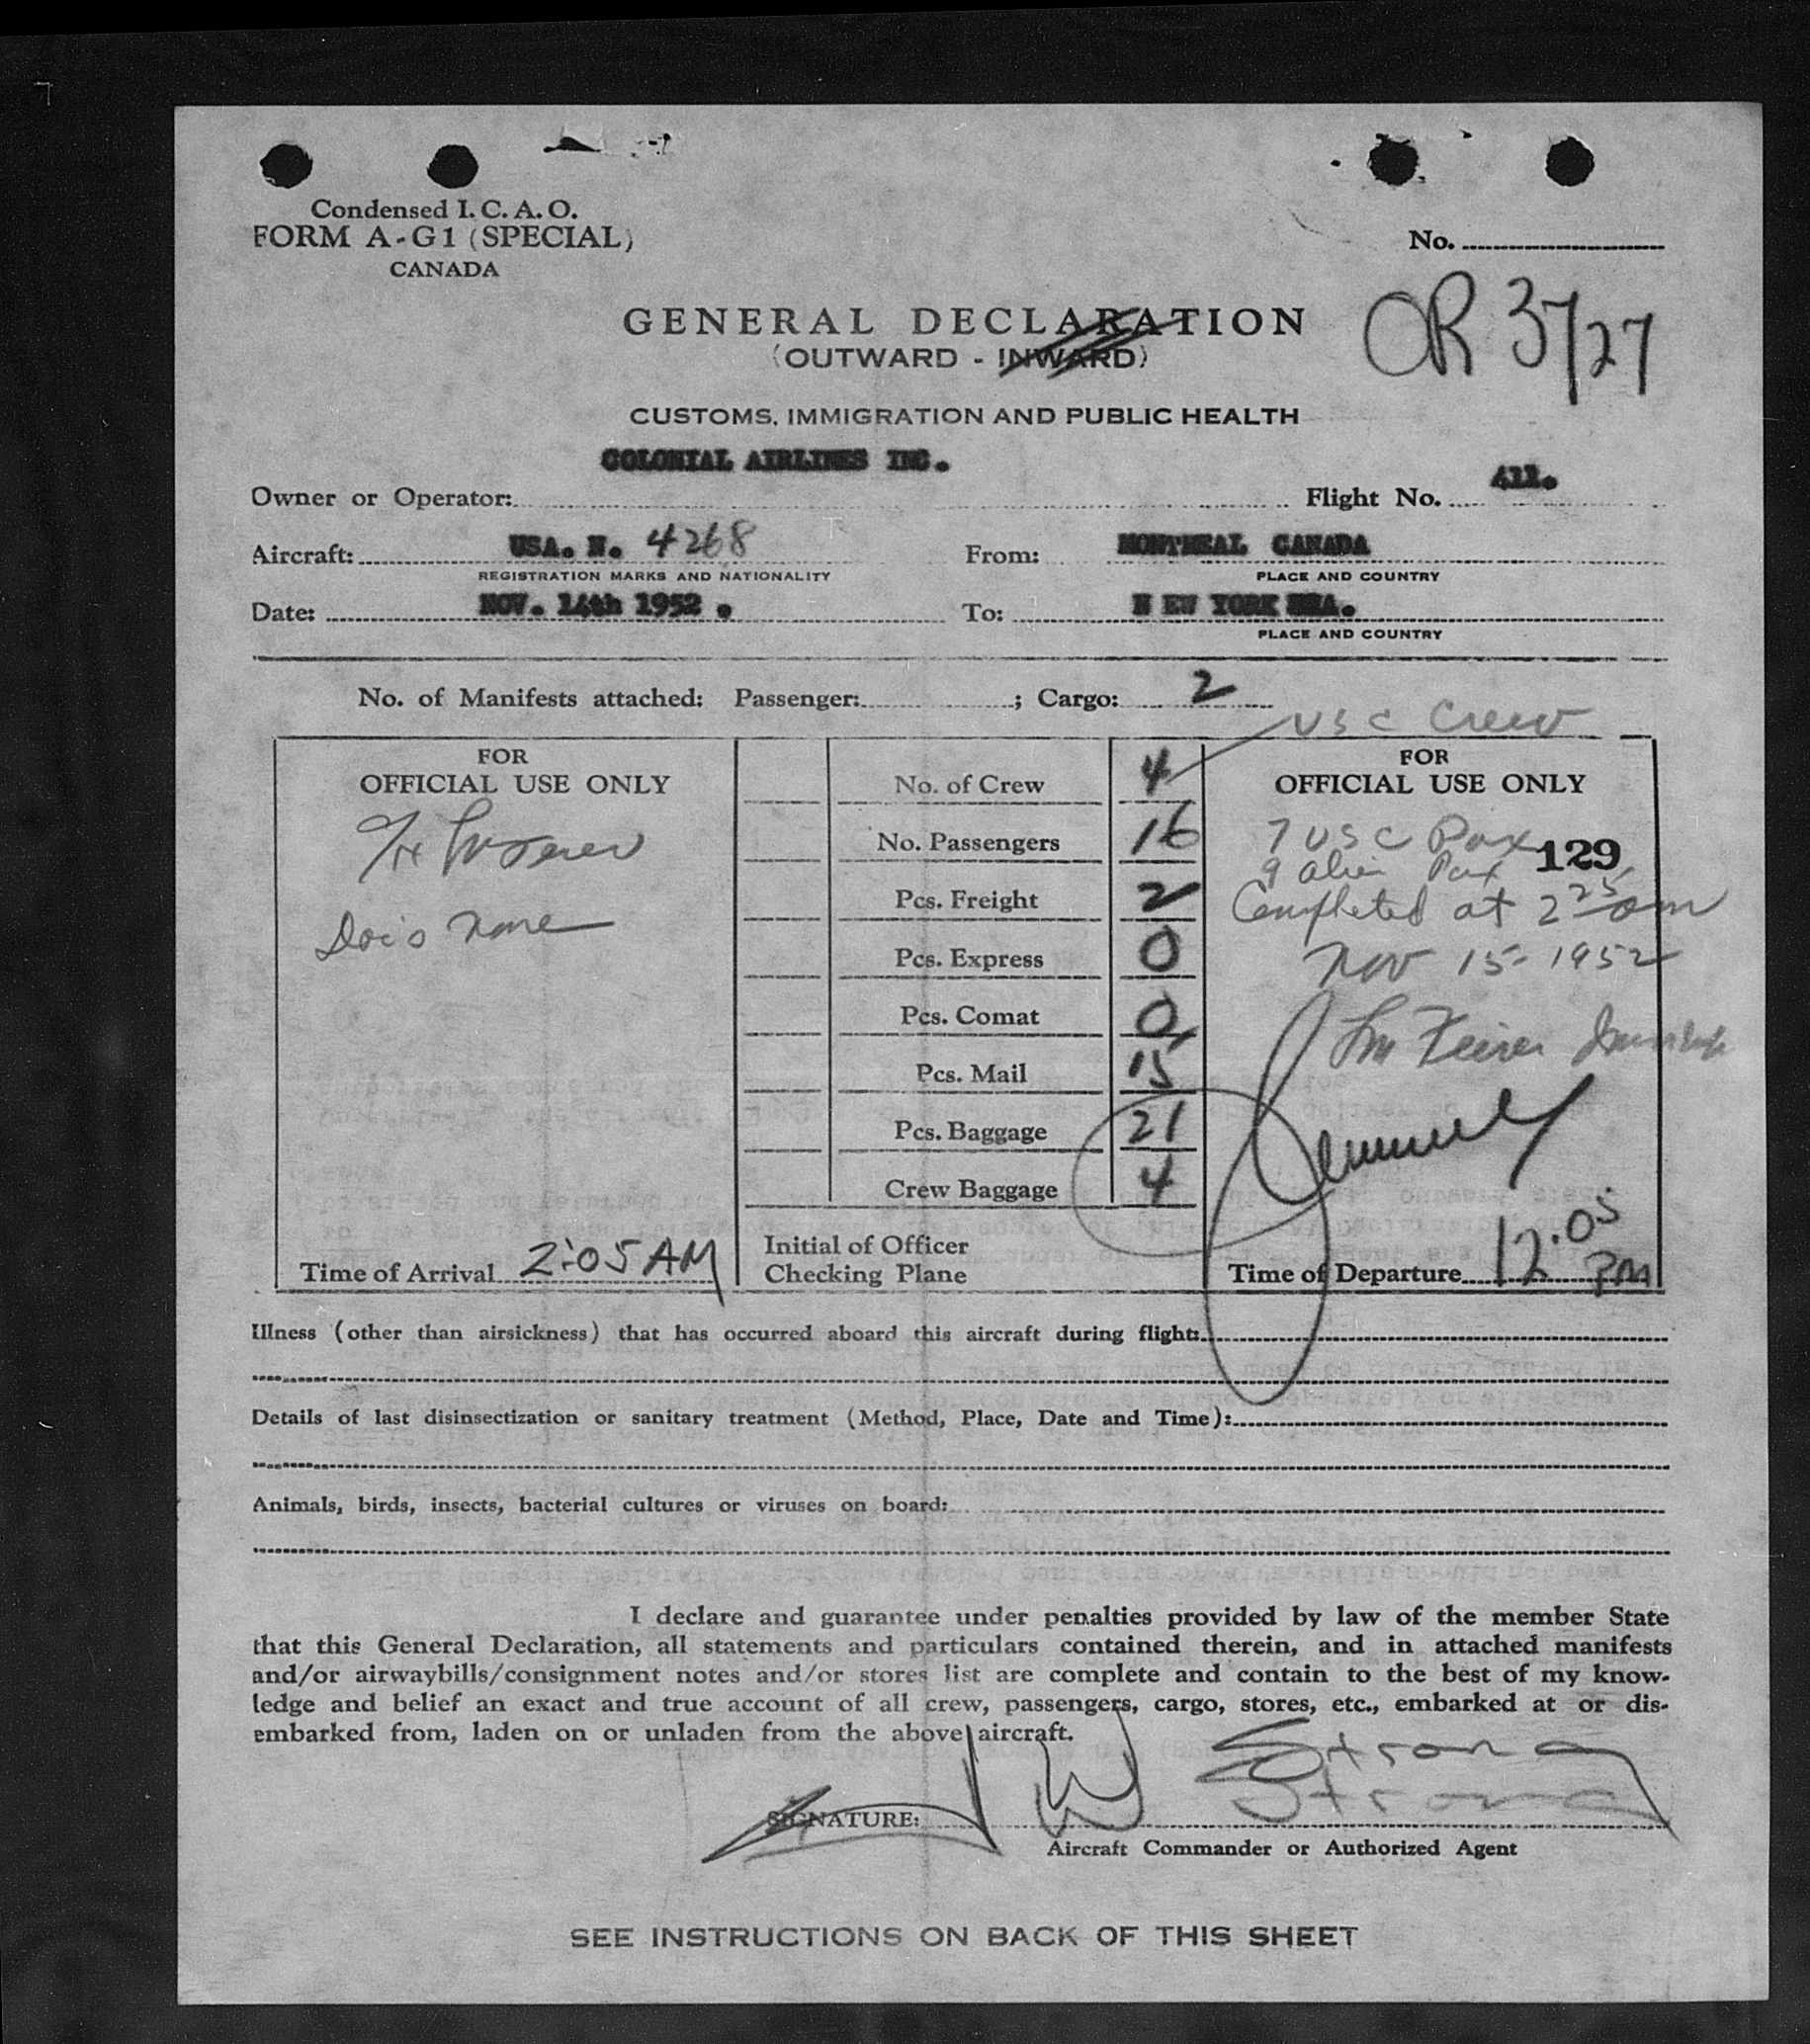 Condensed I. C. A. O.
FORM A-G1 (SPECIAL)
CANADA
No.
OR 37/27
GENERAL DECLARATION
(OUTWARD - INWARD)
CUSTOMS, IMMIGRATION AND PUBLIC HEALTH
COLONIAL AIRLINES INC.
Owner or Operator: Flight No. 411.
Aircraft: USA. N. 4268 From: MONTREAL CANADA
REGISTRATION MARKS AND NATIONALITY PLACE AND COUNTRY
Date: NOV. 14th 1952 . To: N EW YORK USA.
PLACE AND COUNTRY
No. of Manifests attached: Passenger: ; Cargo: 2
USC Crew
FOR
OFFICIAL USE ONLY
Doc's none
Time of Arrival 2:05 AM
No. of Crew 4
No. Passengers 16
Pcs. Freight 2
Pcs. Express 0
Pcs. Comat 0
Pcs. Mail 15
Pcs. Baggage 21
Crew Baggage 4
Initial of Officer
Checking Plane
FOR
OFFICIAL USE ONLY
7 USC Pax
129
9 alien Pax
Completed at 2 25 am
Nov 15 - 1952
Time of Departure 12.05 PM
Illness (other than airsickness) that has occurred aboard this aircraft during flight:
Details of last disinsectization or sanitary treatment (Method, Place, Date and Time):
Animals, birds, insects, bacterial cultures or viruses on board:
I declare and guarantee under penalties provided by law of the member State
that this General Declaration, all statements and particulars contained therein, and in attached manifests
and/or airwaybills/consignment notes and/or stores list are complete and contain to the best of my know-
ledge and belief an exact and true account of all crew, passengers, cargo, stores, etc., embarked at or dis-
embarked from, laden on or unladen from the above aircraft.
W Strong
Strong
SIGNATURE:
Aircraft Commander or Authorized Agent
SEE INSTRUCTIONS ON BACK OF THIS SHEET